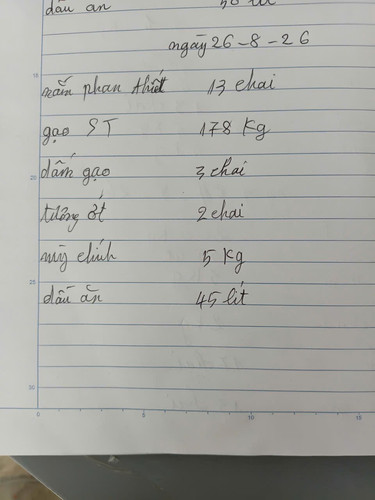 dầu ăn 50 lít
ngày 26-8-26
mắm phan thiết 13 chai
gạo ST 178 Kg
dấm gạo 3 chai
tương ớt 2 chai
mỳ chính 5 Kg
dầu ăn 45 lít
15
20
25
30
0 5 10 15